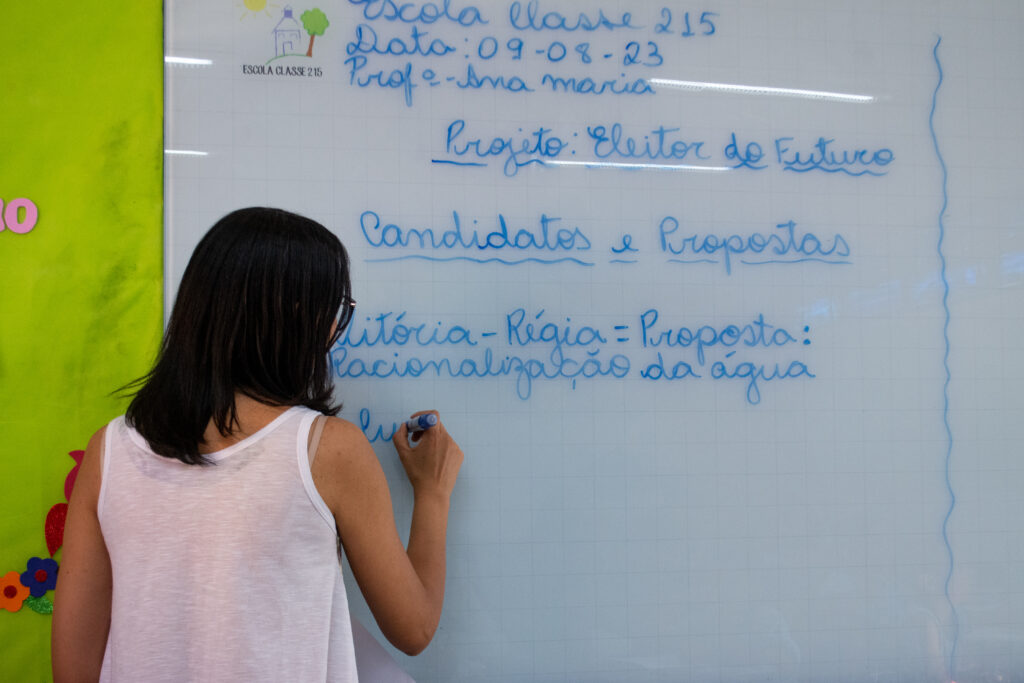 Escola Classe 215
Data: 09-08-23
Profª - Ana maria
ESCOLA CLASSE 215
Projeto: Eleitor do Futuro
Candidatos e Propostas
itória - Régia = Proposta:
Racionalização da água